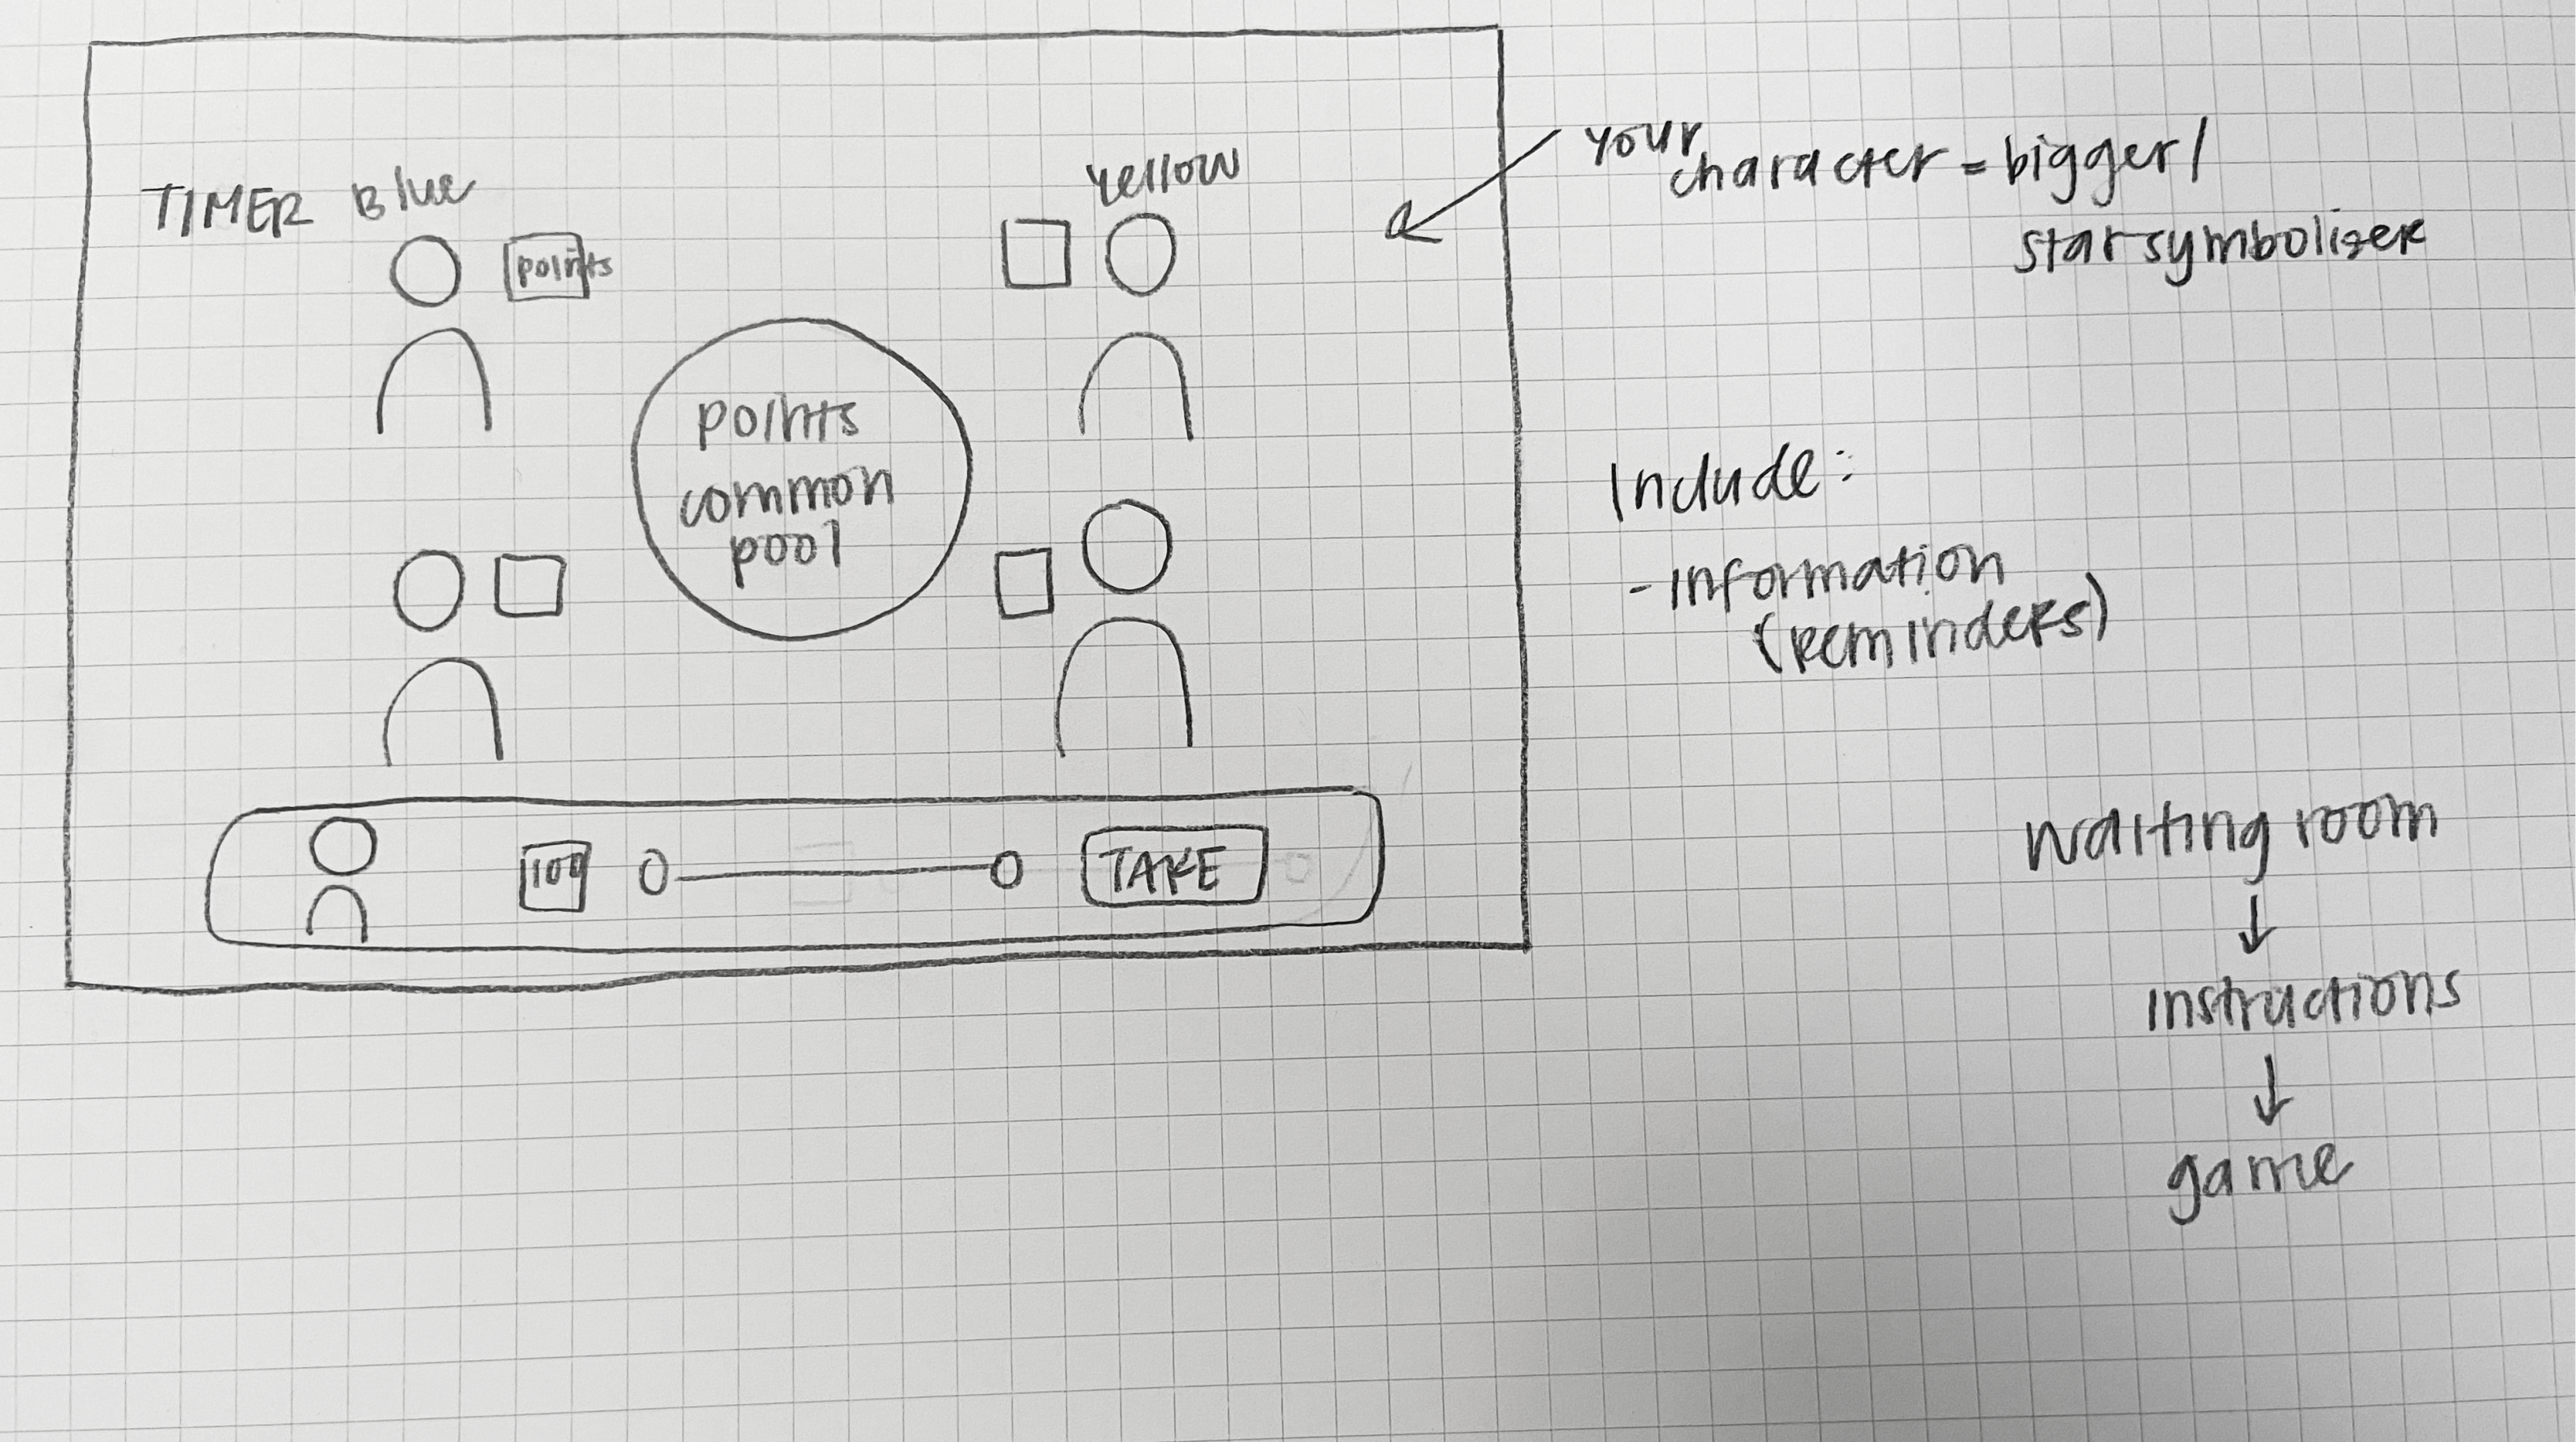 TIMER Blue
Yellow
points
points
common
pool
100
TAKE
your
character = bigger /
star symbolizer
Include:
- information
(reminders)
waiting room
↓
instructions
↓
game